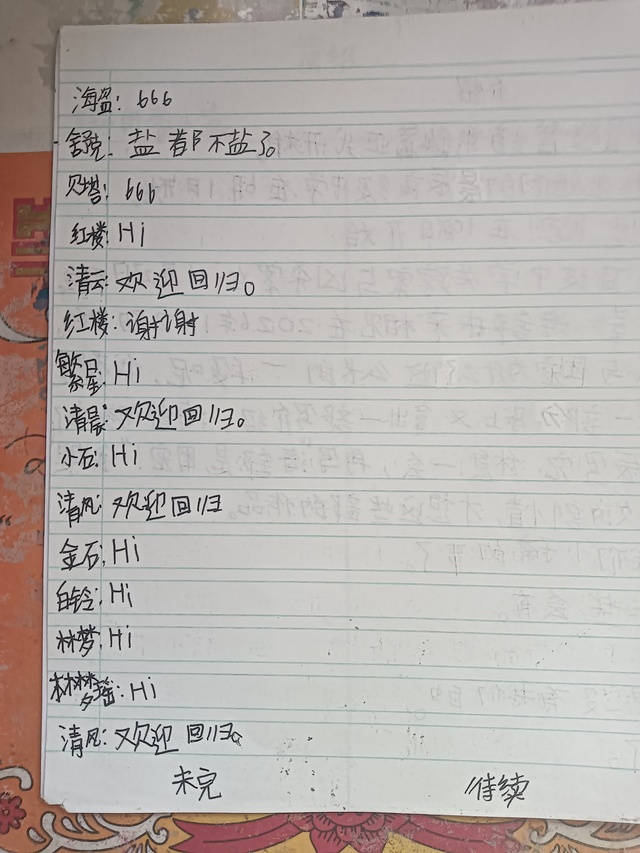 海盗: 666
舒克: 盐都不盐了。
贝塔: 666
红楼: Hi
清云: 欢迎回归。
红楼: 谢谢
繁星: Hi
清晨: 欢迎回归。
小石: Hi
清风: 欢迎回归
金石: Hi
白铃: Hi
林梦: Hi
林梦瑶: Hi
清风: 欢迎回归。
未完 待续